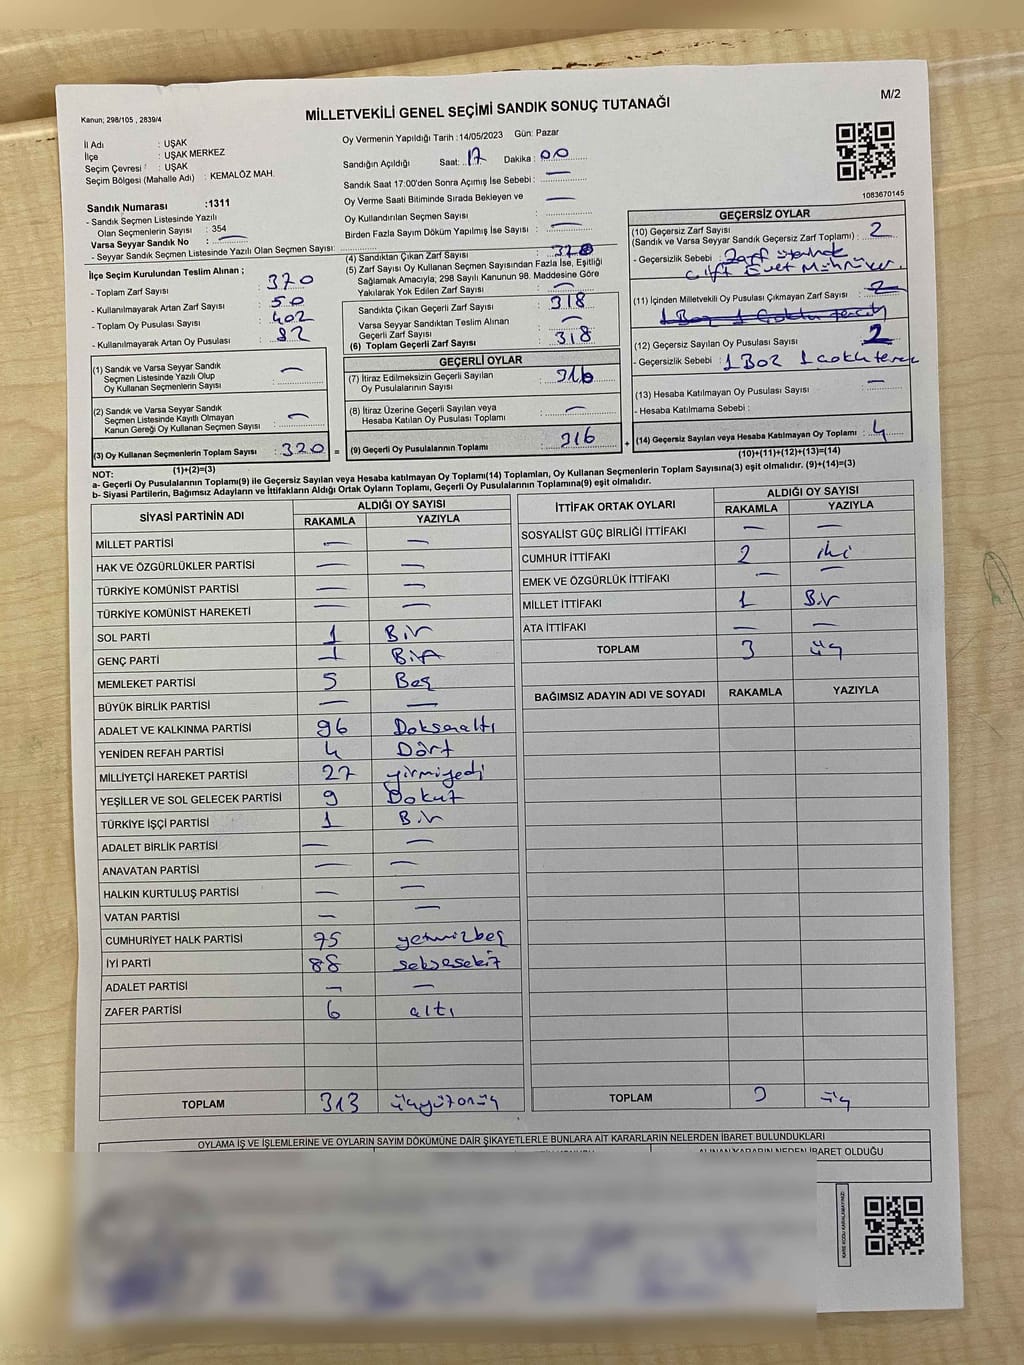 M/2
MİLLETVEKİLİ GENEL SEÇİMİ SANDIK SONUÇ TUTANAĞI
Kanun; 298/105 , 2839/4
İl Adı : UŞAK
İlçe : UŞAK MERKEZ
Seçim Çevresi : UŞAK
Seçim Bölgesi (Mahalle Adı) : KEMALÖZ MAH.
Sandık Numarası :1311
- Sandık Seçmen Listesinde Yazılı
Olan Seçmenlerin Sayısı : 354
Varsa Seyyar Sandık No : —
- Seyyar Sandık Seçmen Listesinde Yazılı Olan Seçmen Sayısı:
Oy Vermenin Yapıldığı Tarih : 14/05/2023 Gün: Pazar
Sandığın Açıldığı Saat: 17 Dakika : 00
Sandık Saat 17:00'den Sonra Açımış İse Sebebi : —
Oy Verme Saati Bitiminde Sırada Bekleyen ve
Oy Kullandırılan Seçmen Sayısı : —
Birden Fazla Sayım Döküm Yapılmış İse Sayısı : —
1083670145
İlçe Seçim Kurulundan Teslim Alınan ;
- Toplam Zarf Sayısı : 370
- Kullanılmayarak Artan Zarf Sayısı : 50
- Toplam Oy Pusulası Sayısı : 402
- Kullanılmayarak Artan Oy Pusulası : 82
(1) Sandık ve Varsa Seyyar Sandık
Seçmen Listesinde Yazılı Olup
Oy Kullanan Seçmenlerin Sayısı : —
(2) Sandık ve Varsa Seyyar Sandık
Seçmen Listesinde Kayıtlı Olmayan
Kanun Gereği Oy Kullanan Seçmen Sayısı : —
(3) Oy Kullanan Seçmenlerin Toplam Sayısı : 320 =
(1)+(2)=(3)
(4) Sandıktan Çıkan Zarf Sayısı :
(5) Zarf Sayısı Oy Kullanan Seçmen Sayısından Fazla İse, Eşitliği
Sağlamak Amacıyla, 298 Sayılı Kanunun 98. Maddesine Göre
Yakılarak Yok Edilen Zarf Sayısı : —
Sandıkta Çıkan Geçerli Zarf Sayısı : 318
Varsa Seyyar Sandıktan Teslim Alınan
Geçerli Zarf Sayısı : —
(6) Toplam Geçerli Zarf Sayısı : 318
GEÇERLİ OYLAR
(7) İtiraz Edilmeksizin Geçerli Sayılan
Oy Pusulalarının Sayısı : 316
(8) İtiraz Üzerine Geçerli Sayılan veya
Hesaba Katılan Oy Pusulası Toplamı : —
(9) Geçerli Oy Pusulalarının Toplamı : 316 +
GEÇERSİZ OYLAR
(10) Geçersiz Zarf Sayısı
(Sandık ve Varsa Seyyar Sandık Geçersiz Zarf Toplamı) : 2
- Geçersizlik Sebebi : Zarf
Çift Evet
(11) İçinden Milletvekili Oy Pusulası Çıkmayan Zarf Sayısı : 2
(12) Geçersiz Sayılan Oy Pusulası Sayısı : 2
- Geçersizlik Sebebi : 1 Boz 1 Çoklu tercih
(13) Hesaba Katılmayan Oy Pusulası Sayısı : —
- Hesaba Katılmama Sebebi :
(14) Geçersiz Sayılan veya Hesaba Katılmayan Oy Toplamı : 4
(10)+(11)+(12)+(13)=(14)
NOT:
a- Geçerli Oy Pusulalarının Toplamı(9) ile Geçersiz Sayılan veya Hesaba katılmayan Oy Toplamı(14) Toplamları, Oy Kullanan Seçmenlerin Toplam Sayısına(3) eşit olmalıdır. (9)+(14)=(3)
b- Siyasi Partilerin, Bağımsız Adayların ve İttifakların Aldığı Ortak Oyların Toplamı, Geçerli Oy Pusulalarının Toplamına(9) eşit olmalıdır.
SİYASİ PARTİNİN ADI ALDIĞI OY SAYISI
RAKAMLA YAZIYLA
MİLLET PARTİSİ — —
HAK VE ÖZGÜRLÜKLER PARTİSİ — —
TÜRKİYE KOMÜNİST PARTİSİ — —
TÜRKİYE KOMÜNİST HAREKETİ — —
SOL PARTİ 1 Bir
GENÇ PARTİ 1 Bir
MEMLEKET PARTİSİ 5 Beş
BÜYÜK BİRLİK PARTİSİ — —
ADALET VE KALKINMA PARTİSİ 96 Doksanaltı
YENİDEN REFAH PARTİSİ 4 Dört
MİLLİYETÇİ HAREKET PARTİSİ 27 yirmiyedi
YEŞİLLER VE SOL GELECEK PARTİSİ 9 Dokuz
TÜRKİYE İŞÇİ PARTİSİ 1 Bir
ADALET BİRLİK PARTİSİ — —
ANAVATAN PARTİSİ — —
HALKIN KURTULUŞ PARTİSİ — —
VATAN PARTİSİ — —
CUMHURİYET HALK PARTİSİ 75 yetmişbeş
İYİ PARTİ 88 seksensekiz
ADALET PARTİSİ — —
ZAFER PARTİSİ 6 altı
TOPLAM 313 üçyüzonüç
İTTİFAK ORTAK OYLARI ALDIĞI OY SAYISI
RAKAMLA YAZIYLA
SOSYALİST GÜÇ BİRLİĞİ İTTİFAKI — —
CUMHUR İTTİFAKI 2 iki
EMEK VE ÖZGÜRLÜK İTTİFAKI — —
MİLLET İTTİFAKI 1 Bir
ATA İTTİFAKI — —
TOPLAM 3 üç
BAĞIMSIZ ADAYIN ADI VE SOYADI RAKAMLA YAZIYLA
TOPLAM 3 üç
OYLAMA İŞ VE İŞLEMLERİNE VE OYLARIN SAYIM DÖKÜMÜNE DAİR ŞİKAYETLERLE BUNLARA AİT KARARLARIN NELERDEN İBARET BULUNDUKLARI
ALINAN KARARIN NEDEN İBARET OLDUĞU
KARE KODU KARALAMAYINIZ!